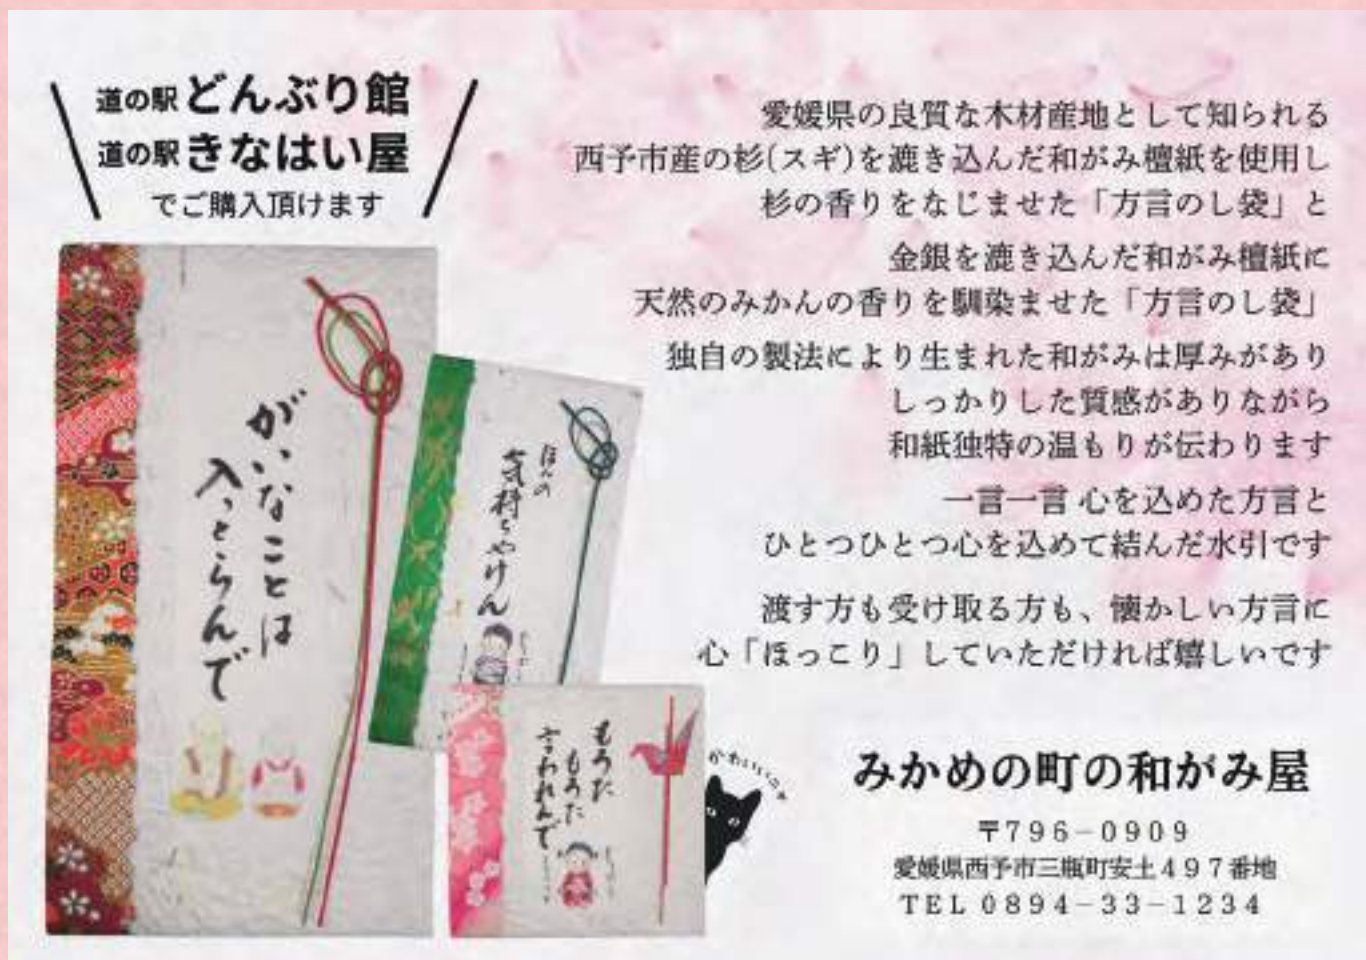 道の駅 どんぶり館
道の駅 きなはい屋
でご購入頂けます
愛媛県の良質な木材産地として知られる
西予市産の杉(スギ)を漉き込んだ和がみ檀紙を使用し
杉の香りをなじませた「方言のし袋」と
金銀を漉き込んだ和がみ檀紙に
天然のみかんの香りを馴染ませた「方言のし袋」
独自の製法により生まれた和がみは厚みがあり
しっかりした質感がありながら
和紙独特の温もりが伝わります
一言一言 心を込めた方言と
ひとつひとつ心を込めて結んだ水引です
渡す方も受け取る方も、懐かしい方言に
心「ほっこり」していただければ嬉しいです
がいなことは
入っとらんで
ほんの
気持ちやけん
もろた
もろた
さわれんで
かわいいこっゃ
みかめの町の和がみ屋
〒796-0909
愛媛県西予市三瓶町安土497番地
TEL 0894-33-1234